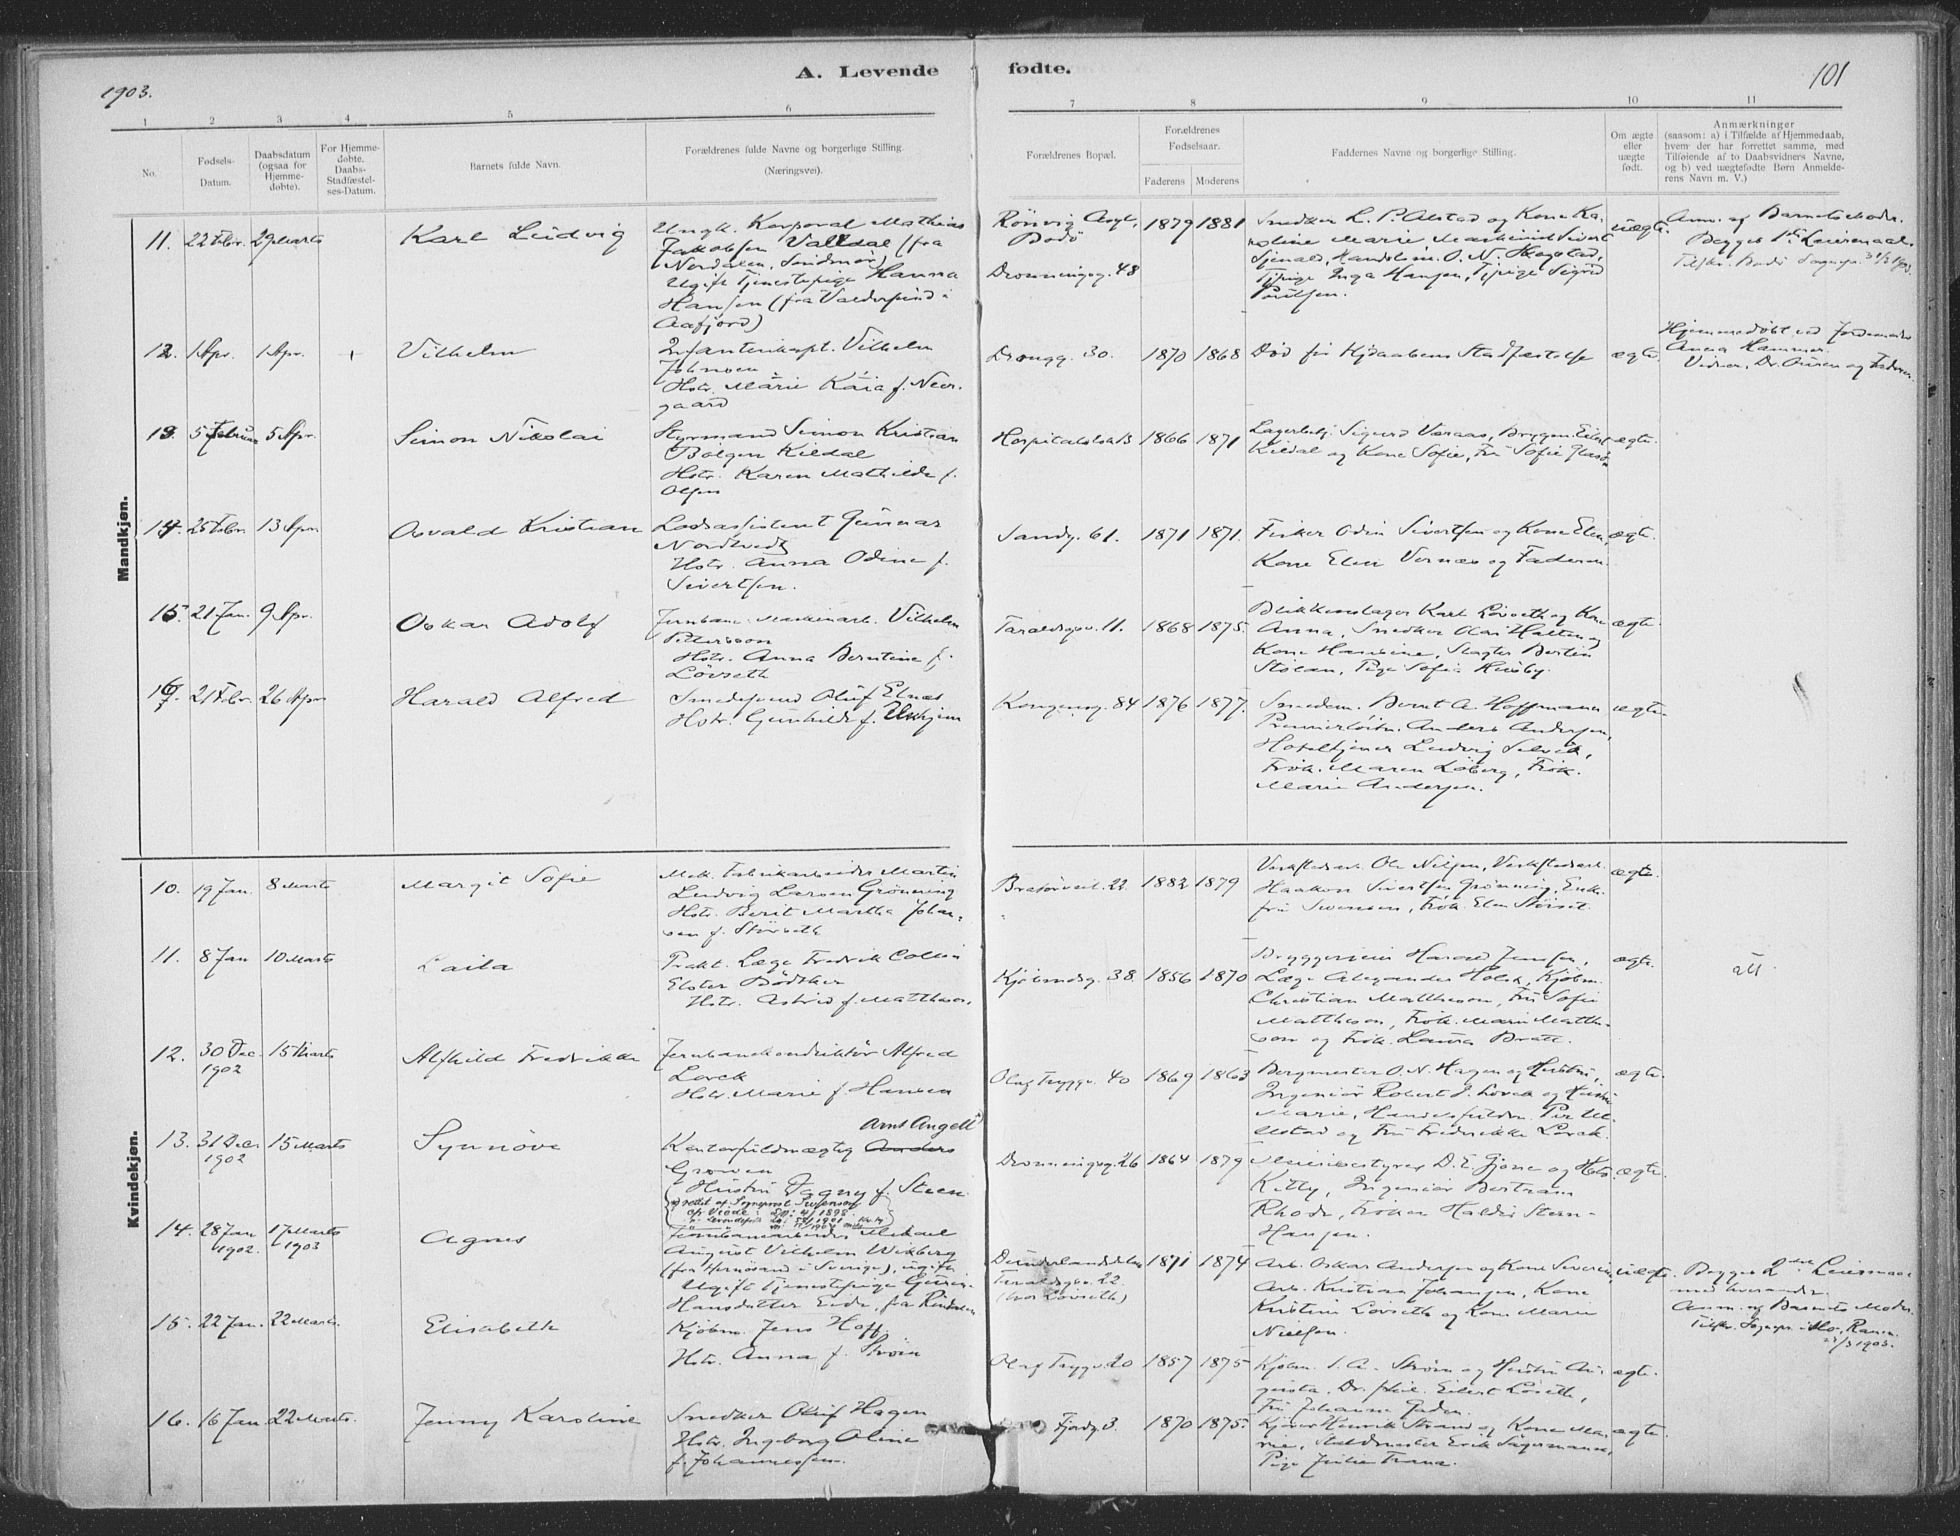 1903.
A. Levende
fødte.
101
1 2 3 4 5 6 7 8 9 10 11
No.
Fødsels-
Datum.
Daabsdatum
(ogsaa for
Hjemme-
døbte).
For Hjemme-
døbte.
Daabs-
Stadfæstel-
ses-Datum.
Barnets fulde Navn.
Forældrenes fulde Navne og borgerlige Stilling.
(Næringsvei).
Forældrenes Bopæl.
Forældrenes
Fødselsaar.
Faderens Moderens
Faddernes Navne og borgerlige Stilling.
Om ægte
eller
uægte
født.
Anmærkninger
(saasom: a) i Tilfælde af Hjemmedaab,
hvem der har forrettet samme, med
Tilføiende af to Daabsvidners Navne,
og b) ved uægtefødte Børn Anmelde-
rens Navn m. V.)
Mandkjøn.
11. 22 Febr. 29 Marts
Karl Ludvig
Ungk. Korporal Mathias
Jakobsen Valldal (fra
Nordalen, Søndmør)
Ugift Tjenestepige Hanna
Hansen (fra
Aafjord)
Rønvig Asyl,
Bodö
Dronningsg. 48
1879 1881
Snedker L. P. Alstad og Kone Ka-
roline Marie, Sivert
O. N. Hogstad,
Tjpige Inga Hansen, Tjpige Sigrid
Poulsen.
uægte.
Anm. af Barnets Moder.
Begges 1ste Leiermaal.
Tilskr. Bodö Sognepr. 31/3 1903.
12. 1 Apr. 1 Apr. +
Vilhelm
Infanterikapt. Vilhelm
Johnsen
Hstr. Marie Kaia f. Neer-
gaard
Drongg. 30.
1870 1868
Død før Hjdaabens Stadfæstelse
ægte.
Hjemmedøbt ved Jordemoder
Anna Hammer.
Vidner, Dr. Ouren og Faderen.
13. 5 Februar 5 Apr.
Simon Nikolai
Styrmand Simon Kristian
Bolgen Kildal
Hstr. Karen Mathilde f.
Olsen
1866 1871
Lagerbetj. Sigurd Varaas,
Kildal og Kone Sofie, Fru Sofie
ægte.
14. 25 Febr. 13 Apr.
Osvald Kristian
Lodsassistent Gunnar
Nordtvedt
Hstr. Anna Odine f.
Sivertsen.
Sandg. 61.
1871 1871.
Fisker Odin Sivertsen og Kone Elen,
Kone Elen Vernæs og Faderen.
ægte.
15. 21 Jan. 9 Apr.
Oskar Adolf
Jernbane-Maskinarb. Vilhelm
Pettersson
Hstr. Anna Berntine f.
Løvseth
Taraldsgv. 11.
1868 1875.
Blikkenslager Karl Løvseth og Kone
Anna, Snedker Olai Halten og
Kone Hansine, Slagter Bertin
Stølan, Pige Sofie Husby.
ægte.
16. 21 Febr. 26 Apr.
Harald Alfred
Smedsvend Oluf Elnæs
Hstr. Gunhilde f.
Kongensg. 84
1876 1877.
Smedem. Bernt A. Hoffmann
Premierløitn. Anders Andersen,
Hoteltjener Ludvig Selvik,
Frøk. Maren Løberg, Frøk.
Marie Andersen.
ægte.
Kvindekjøn.
10. 19 Jan. 8 Marts
Margit Sofie
Mek. Fabrikarbeider Martin
Ludvig Larsen Grönning
Hstr. Berit Martha Johan-
sen f. Störseth
22
1882 1879
Verkstedsarb. Ole Nilsen, Verkstedsarb.
Haakon Sivertsen Grønning, Enke-
fru Svensen, Frøk. Elen Störset.
ægte.
11. 8 Jan 10 Marts
Laila
Prakt. Læge Fredrik Collin
Elster Bödtker
Hstr. Astrid f. Mattheson.
Kjøbmdsg. 38
1856 1870
Bryggerieier Harald Jensen,
Læge Alexander Holst, Kjøbm.
Christian Mattheson, Fru Sofie
Mattheson, Frøk. Marie Matthe-
son og Frøk. Laura Bratt.
ægte.
att.
12. 30 Dec. 1902 15 Marts
Alfhild Fredrikke
Jernbanekonduktör Alfred
Lorck
Hstr. Marie f. Hansen
Olaf Tryggv. 40
1869 1863
Bergmester O. N. Hagen og Hustru,
Ingeniör Robert S. Lorck og Hustru
Marie, Handelsfuldm. Per M.
Ulstad og Fru Fredrikke Lorck.
ægte.
13. 31 Dec. 1902 15 Marts
Synnöve
Arnt Angell
Kontorfuldmægtig Anders
Grøwen
(Hustru Dagny f. Steen
Dronningsg. 26
1864 1879
Meieribestyrer D. E. Gjone og Hstr.
Kitty, Ingeniör Bertram
Rhode, Frøken Haldis Steen-
Hansen.
ægte.
14. 28 Jan 1902. 17 Marts 1903
Agnes
Jernbanearbeider Mikael
August Vilhelm Wikberg
(fra Hernösand i Sverige), ugift
Ugift Tjenestepige Guri
Hansdatter Eide, fra Rindalen
Dunderlandsdalen
Taraldsgv. 22
(hos Lövseth)
1871 1874
Arb. Oskar Andersen og Kone Severine,
Arb. Kristian Johansen, Kone
Kristine Lovseth og Kone Marie
Nielsen.
uægte.
Begges 2det Leiermaal
med hverandre.
Anm. af Barnets Moder.
Tilskr. Sognepr. i Mo, Ranen
1903.
15. 22 Jan. 22 Marts
Elisabeth
Kjøbm. Jens Hoff
Hstr. Anna f. Strøm
Olaf Tryggv. 20
1857 1875
Kjøbm. S. A. Strøm og Hustru Au-
gusta, Dr. phil. Eilert Löseth,
Fru Johanne Gaden.
ægte.
16. 16 Jan 22 Marts.
Jenny Karoline
Snedker Oluf Hagen
Hstr. Ingeborg Oline
f. Johannessen.
Fjordg. 3.
1870 1875.
Kjører Henrik Strand og Kone Ma-
rie, Staldmester Erik Sagermann,
Pige Julie Trana.
ægte.